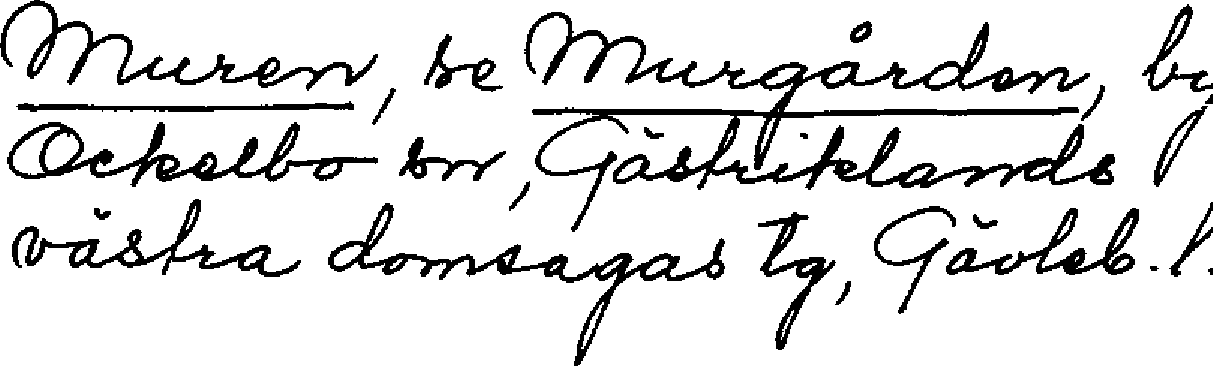 Muren, se Murgården, by
Ockelbo sn, Gästriklands
västra domsagas tg, Gävleb. l.